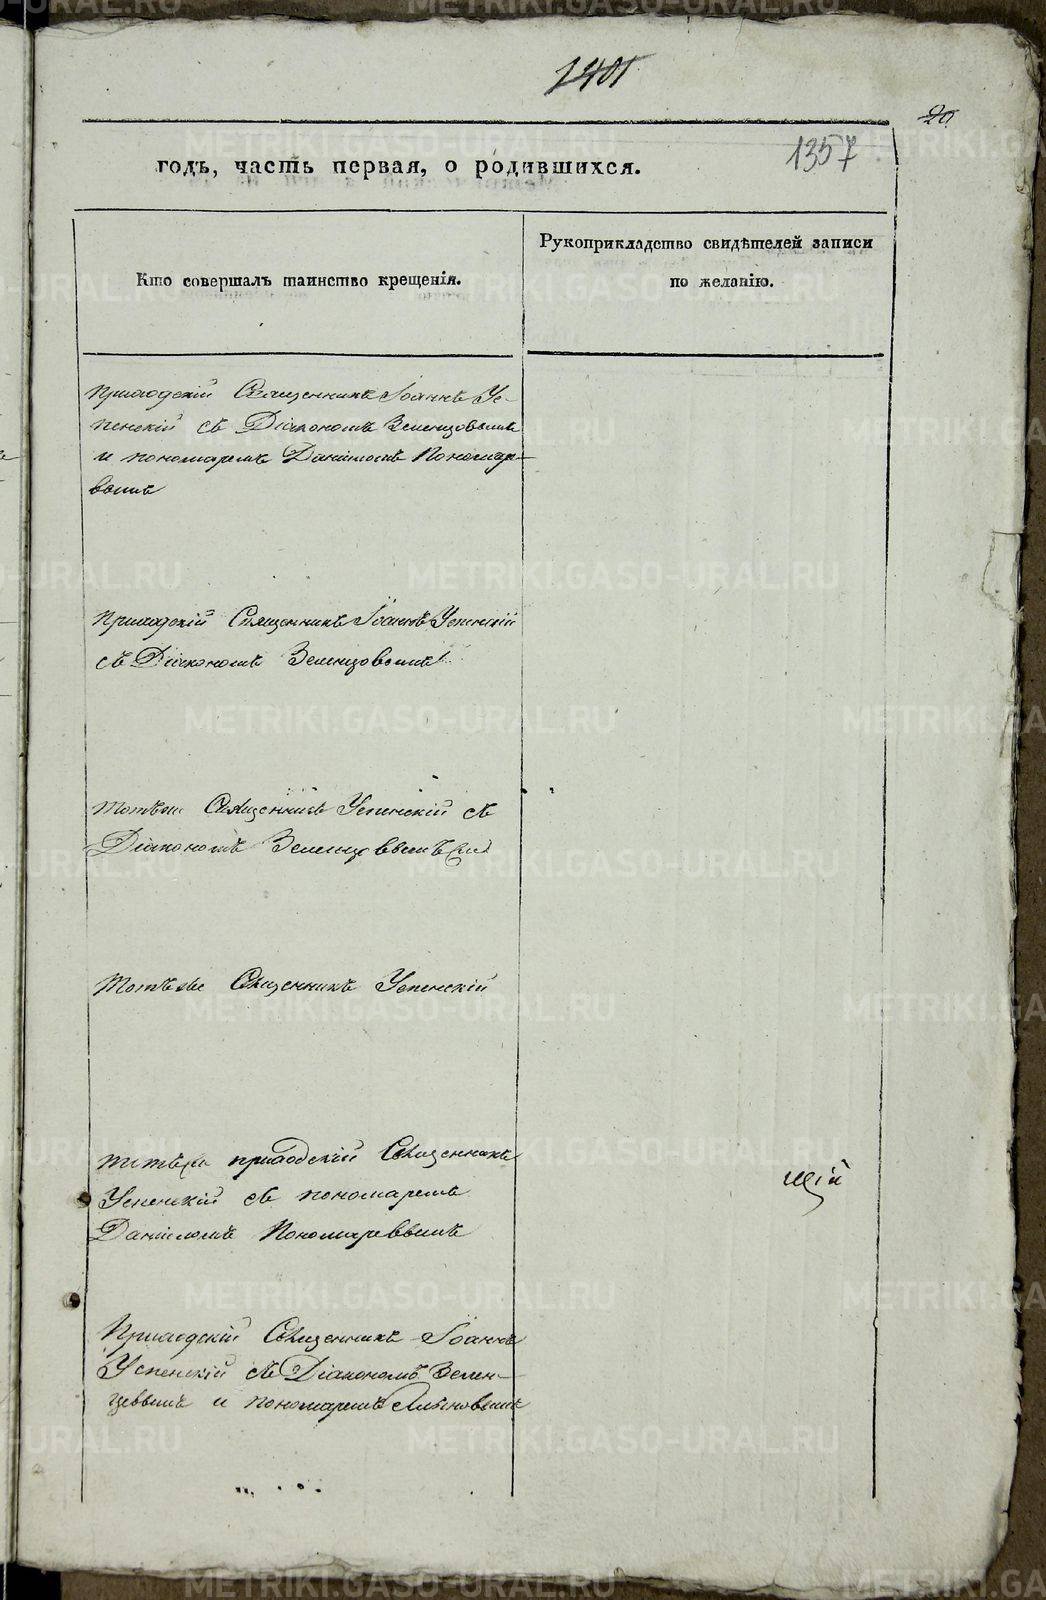 1401
20
1357
годъ, часть первая, о родившихся.
Кто совершалъ таинство крещенія.
Рукоприкладство свидѣтелей записи
по желанію.
Приходскій Священникъ Іоаннъ Ус-
пенскій съ Діакономъ Зеленцовымъ
и пономаремъ Даніиломъ Пономаре-
вымъ
Приходскій Священникъ Іоаннъ Успенскій
съ Діакономъ Зеленцовымъ
Тотъже Священникъ Успенскій съ
Діакономъ Зеленцовымъ
Тотъ же Священникъ Успенскій
Тотъже приходскій Священникъ
Успенскій съ пономаремъ
Даніиломъ Пономаревымъ
щій
Приходскій Священникъ Іоаннъ
Успенскій съ Діакономъ Зелен-
цовымъ и пономаремъ
METRIKI.GASO-URAL.RU